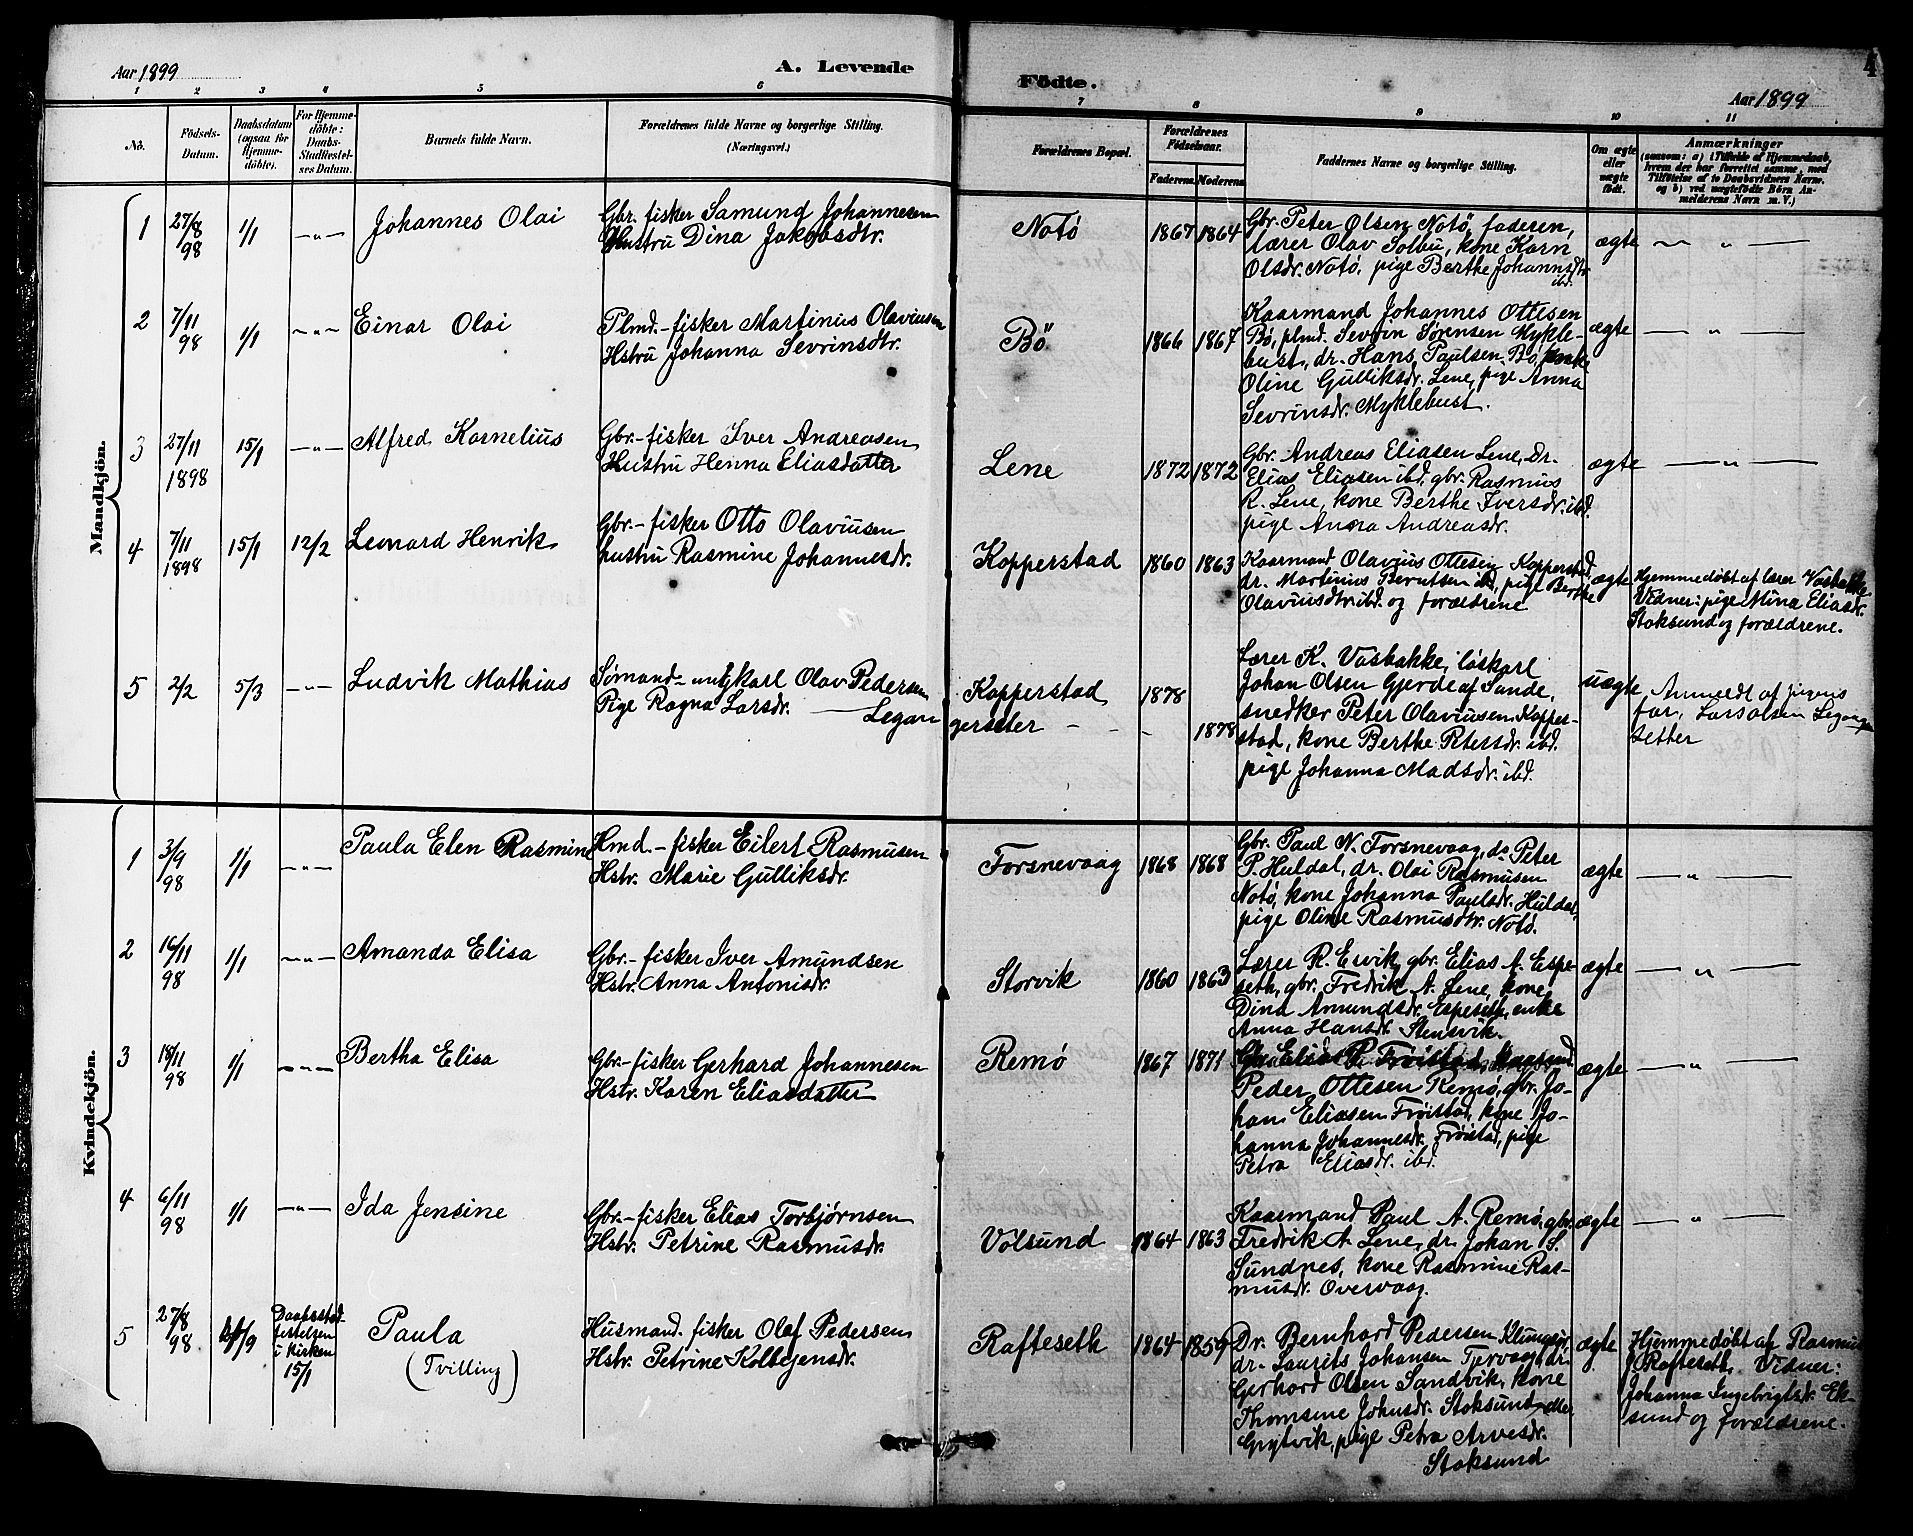 Aar 1899
A. Levende
Födte.
Aar 1899
4
1 2 3 4 5 6 7 8 9 10 11
No.
Födsels-
Datum.
Daabsdatum
(ogsaa for
Hjemme-
döbte).
For Hjemme-
döbte:
Daabs-
Stadfæstel-
ses Datum.
Barnets fulde Navn.
Forældrenes fulde Navne og borgerlige Stilling.
(Næringsvei.)
Forældrenes Bopæl.
Forældrenes
Födselsaar.
Faderens. Moderens.
Faddernes Navne og borgerlige Stilling.
Om ægte
eller
uægte
födt.
Anmærkninger
(saasom: a) i Tilfælde af Hjemmedaab,
hvem der har forrettet samme, med
Tilföielse af to Daabsvidners Navne,
og b) ved uægtefödte Börn An-
melderens Navn m. V.)
Mandkjön.
1
27/8
98
1/1
—"—
Johannes Olai
Gbr. fisker Samund Johannesen
Hustru Dina Jakobsdtr.
Notø
1867 1864
Gbr. Peter Olsen Notö, faderen,
lærer Olav Solbu, kone Karn
Olsdr. Notö, pige Berthe Johannsdtr
ibd.
ægte
— " —
2
7/11
98
1/1
—"—
Einar Olai
Plmd.-fisker Martinus Olaviusen
Hstru Johanna Sevrinsdtr.
Bö
1866 1867
Kaarmand Johannes Ottesen
Bö, plmd. Sevrin Sørensen Mykle-
bust, dr. Hans Paulsen Bø,
Oline Gulliksdr. Lene, pige Anna
Sevrinsdr. Myklebust.
ægte
— " —
3
27/11
1898
15/1
—"—
Alfred Kornelius
Gbr.-fisker Iver Andreasen
Hustru Henna Eliasdatter
Lene
1872 1872
Gbr. Andreas Eliasen Lene, Dr.
Elias Eliasen ibd, gbr. Rasmus
R. Lene, kone Berthe Iversdr. ibd.
pige Anna Andreasdr.
ægte
— " —
4
7/11
1898
15/1
12/2
Leonard Henrik
Gbr.-fisker Otto Olaviusen
hustru Rasmine Johannesdr.
Kopperstad
1860 1863
Kaarmand Olavius Ottesen Kopperstad,
dr. Martinus Berntsen ibd, pige Berthe
Olaviusdtr. ibd. og forældrene
ægte
Hjemmedøbt af lærer Vasbakke
Vidner: pige Mina Eliasdr.
Stoksund og forældrene.
5
2/2
5/3
—"—
Ludvik Mathias
Sømand - ungkarl Olav Pedersen
Pige Ragna Larsdr. — Legan
Kopperstad
gersæter - - -
1878
1878
Lærer K. Vasbakke, löskarl
Johan Olsen Gjerde af Sande,
snedker Peter Olaviusen Kopper-
stad, kone Berthe Petersdr. ibd.
pige Johanna Madsdr. ibd.
uægte
Anmeldt af pigens
far, Lars Olsen Legange
setter
Kvindekjön.
1
3/9
98
1/1
—"—
Paula Elen Rasmine
Hmd.-fisker Eilert Rasmusen
Hstr. Marie Gulliksdr.
Forsnevaag
1868 1868
Gbr. Paul N. Forsnevaag, do Peter
P. Huldal, dr. Olai Rasmusen
Notö, kone Johanna Paulsdr. Huldal,
pige Oline Rasmusdtr. Notö.
ægte
— " —
2
16/11
98
1/1
—"—
Amanda Elisa
Gbr.-fisker Iver Amundsen
Hstr. Anna Antonisdr.
Storvik
1860 1863
Lærer R. Ervik, gbr. Elias A. Espe-
seth, gbr. Fredrik A. Lene, kone
Dina Amundsdr. Espeseth, enke
Anna Hansdr. Stensvik.
ægte
— " —
3
18/11
98
1/1
—"—
Bertha Elisa
Gbr.-fisker Gerhard Johannesen
Hstr. Karen Eliasdatter
Remø
1867 1871
Gbr. Elias P. Frøistad,
Peder Ottesen Remø, gbr. Jo-
han Eliasen Frøistad, kone Jo-
hanna Johannesdr. Frøistad, pige
Petra Eliasdr. ibd.
ægte
— " —
4
6/11
98
1/1
—"—
Ida Jensine
Gbr.-fisker Elias Torbjørnsen
Hstr. Petrine Rasmusdr.
Volsund
1864 1863
Kaarmand Paul A. Remø, gbr.
Fredrik A. Lene, dr. Johan S.
Sundnes, kone Rasmine Ras-
musdr. Overvaag.
ægte
— " —
5
27/8
98
/9
Daabsstad-
festelsen
i kirken
15/1
Paula
(Tvilling)
Husmand. fisker Olaf Pedersen
Hstr. Petrine Kolbejensdr.
Rafteseth
1864 1859
Dr. Bernhard Pedersen Klungsör,
dr. Laurits Johansen Tjervaag, dr.
Gerhard Olsen Sandvik, kone
Thomsine Johnsdr. Stoksund eller
Grytvik, pige Petra Arvesdr.
Stoksund
ægte
Hjemmedøbt af Rasmus
J. Rafteseth. Vidner:
Johanna Ingebrigtsdr. Ek-
sund og forældrene.